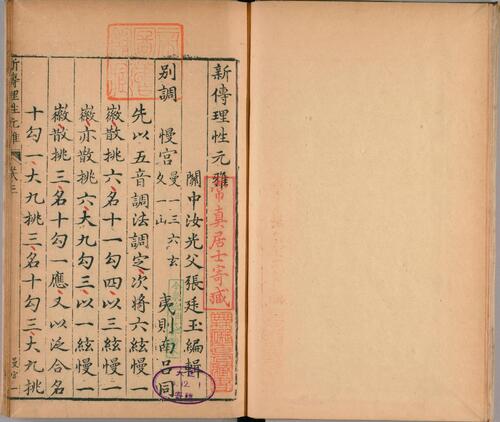 新傳理性元雅
關中汝光父張廷玉編輯
別調 慢宮 曼一三六玄 夷則南呂同
久一山
先以五音調法調定次將六絃慢一
徽散挑六名十一勾四以三絃慢一
徽亦散挑六大九勾三以一絃慢一
徽散挑三名十勾一應又以泛合名
十勾一大九挑三名十勾三大九挑
新傳理性元雅 卷三
曼宮一
帶真居士寄臧